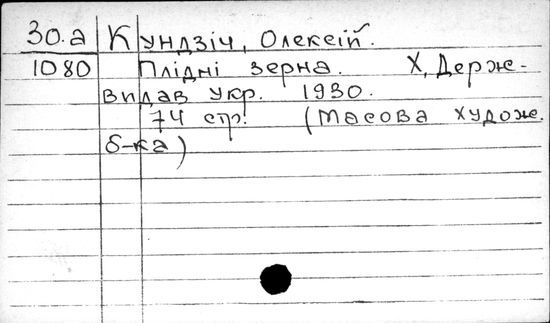 30.а Кундзіч, Олексій.
1080 Плідні зерна. Х, Держ-
видав Укр. 1930.
74 стр. (Масова худож.
б-ка)